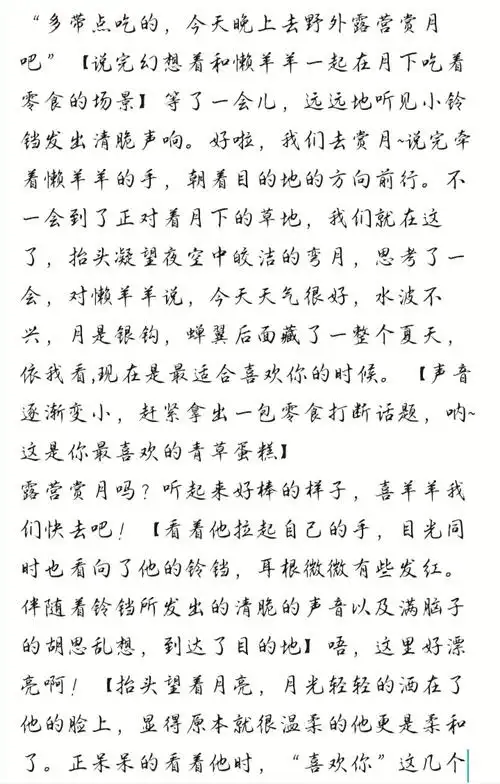 “多带点吃的，今天晚上去野外露营赏月
吧”【说完幻想着和懒羊羊一起在月下吃着
零食的场景】等了一会儿，远远地听见小铃
铛发出清脆声响。好啦，我们去赏月~说完牵
着懒羊羊的手，朝着目的地的方向前行。不
一会到了正对着月下的草地，我们就在这
了，抬头凝望夜空中皎洁的弯月，思考了一
会，对懒羊羊说，今天天气很好，水波不
兴，月是银钩，蝉翼后面藏了一整个夏天，
依我看,现在是最适合喜欢你的时候。【声音
逐渐变小，赶紧拿出一包零食打断话题，呐~
这是你最喜欢的青草蛋糕】
露营赏月吗？听起来好棒的样子，喜羊羊我
们快去吧！【看着他拉起自己的手，目光同
时也看向了他的铃铛，耳根微微有些发红。
伴随着铃铛所发出的清脆的声音以及满脑子
的胡思乱想，到达了目的地】唔，这里好漂
亮啊！【抬头望着月亮，月光轻轻的洒在了
他的脸上，显得原本就很温柔的他更是柔和
了。正呆呆的看着他时，“喜欢你”这几个